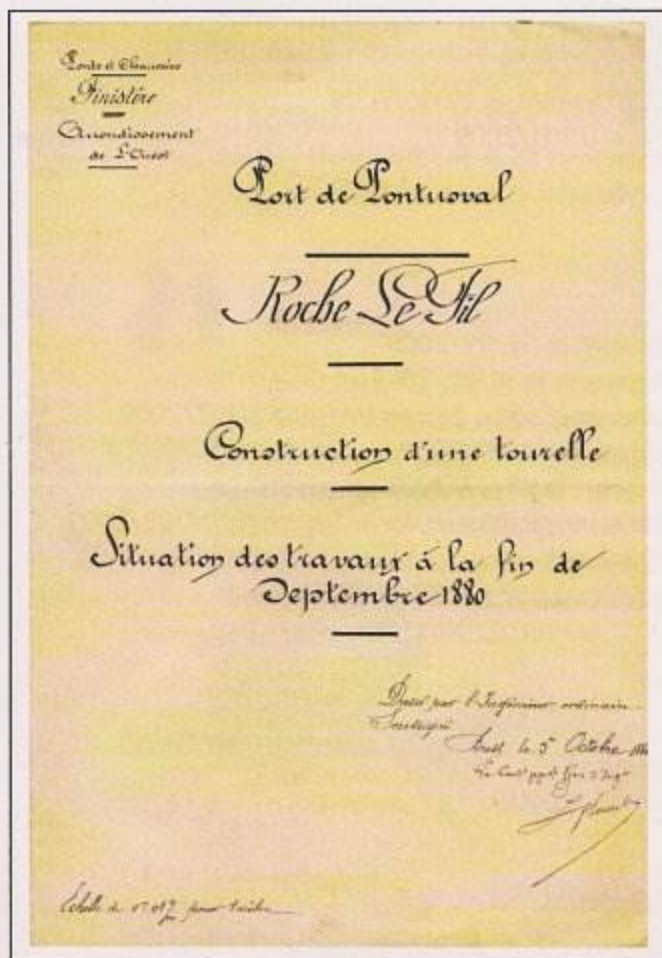 Ponts et Chaussées
Finistère
Arrondissement
de L'Ouest
Port de Pontusval
Roche Le Fil
Construction d'une tourelle
Situation des travaux à la fin de
Septembre 1880
Dressé par l'Ingénieur ordinaire
Soussigné
Brest le 5 Octobre 1880
Echelle de pour mètre